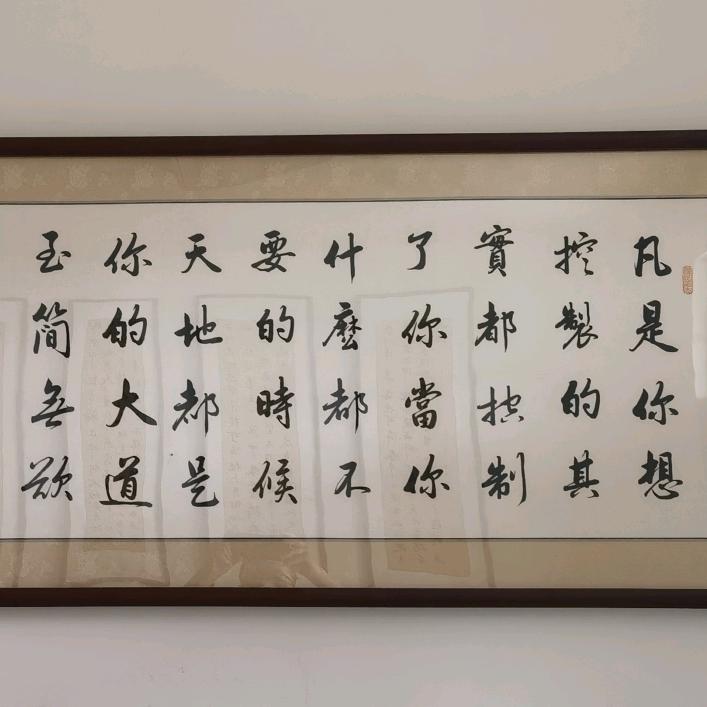 凡是你想
控製的其
實都控制
了你當你
什麼都不
要的時候
天地都是
你的大道
至簡無欲